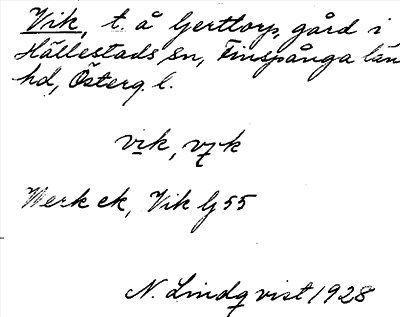 Vik, t. å Gerttorp, gård i
Hällestads sn, Finspånga län
hd, Österg. l.
vik, vık
Werk ek, Vik G 55
N. Lindqvist 1928